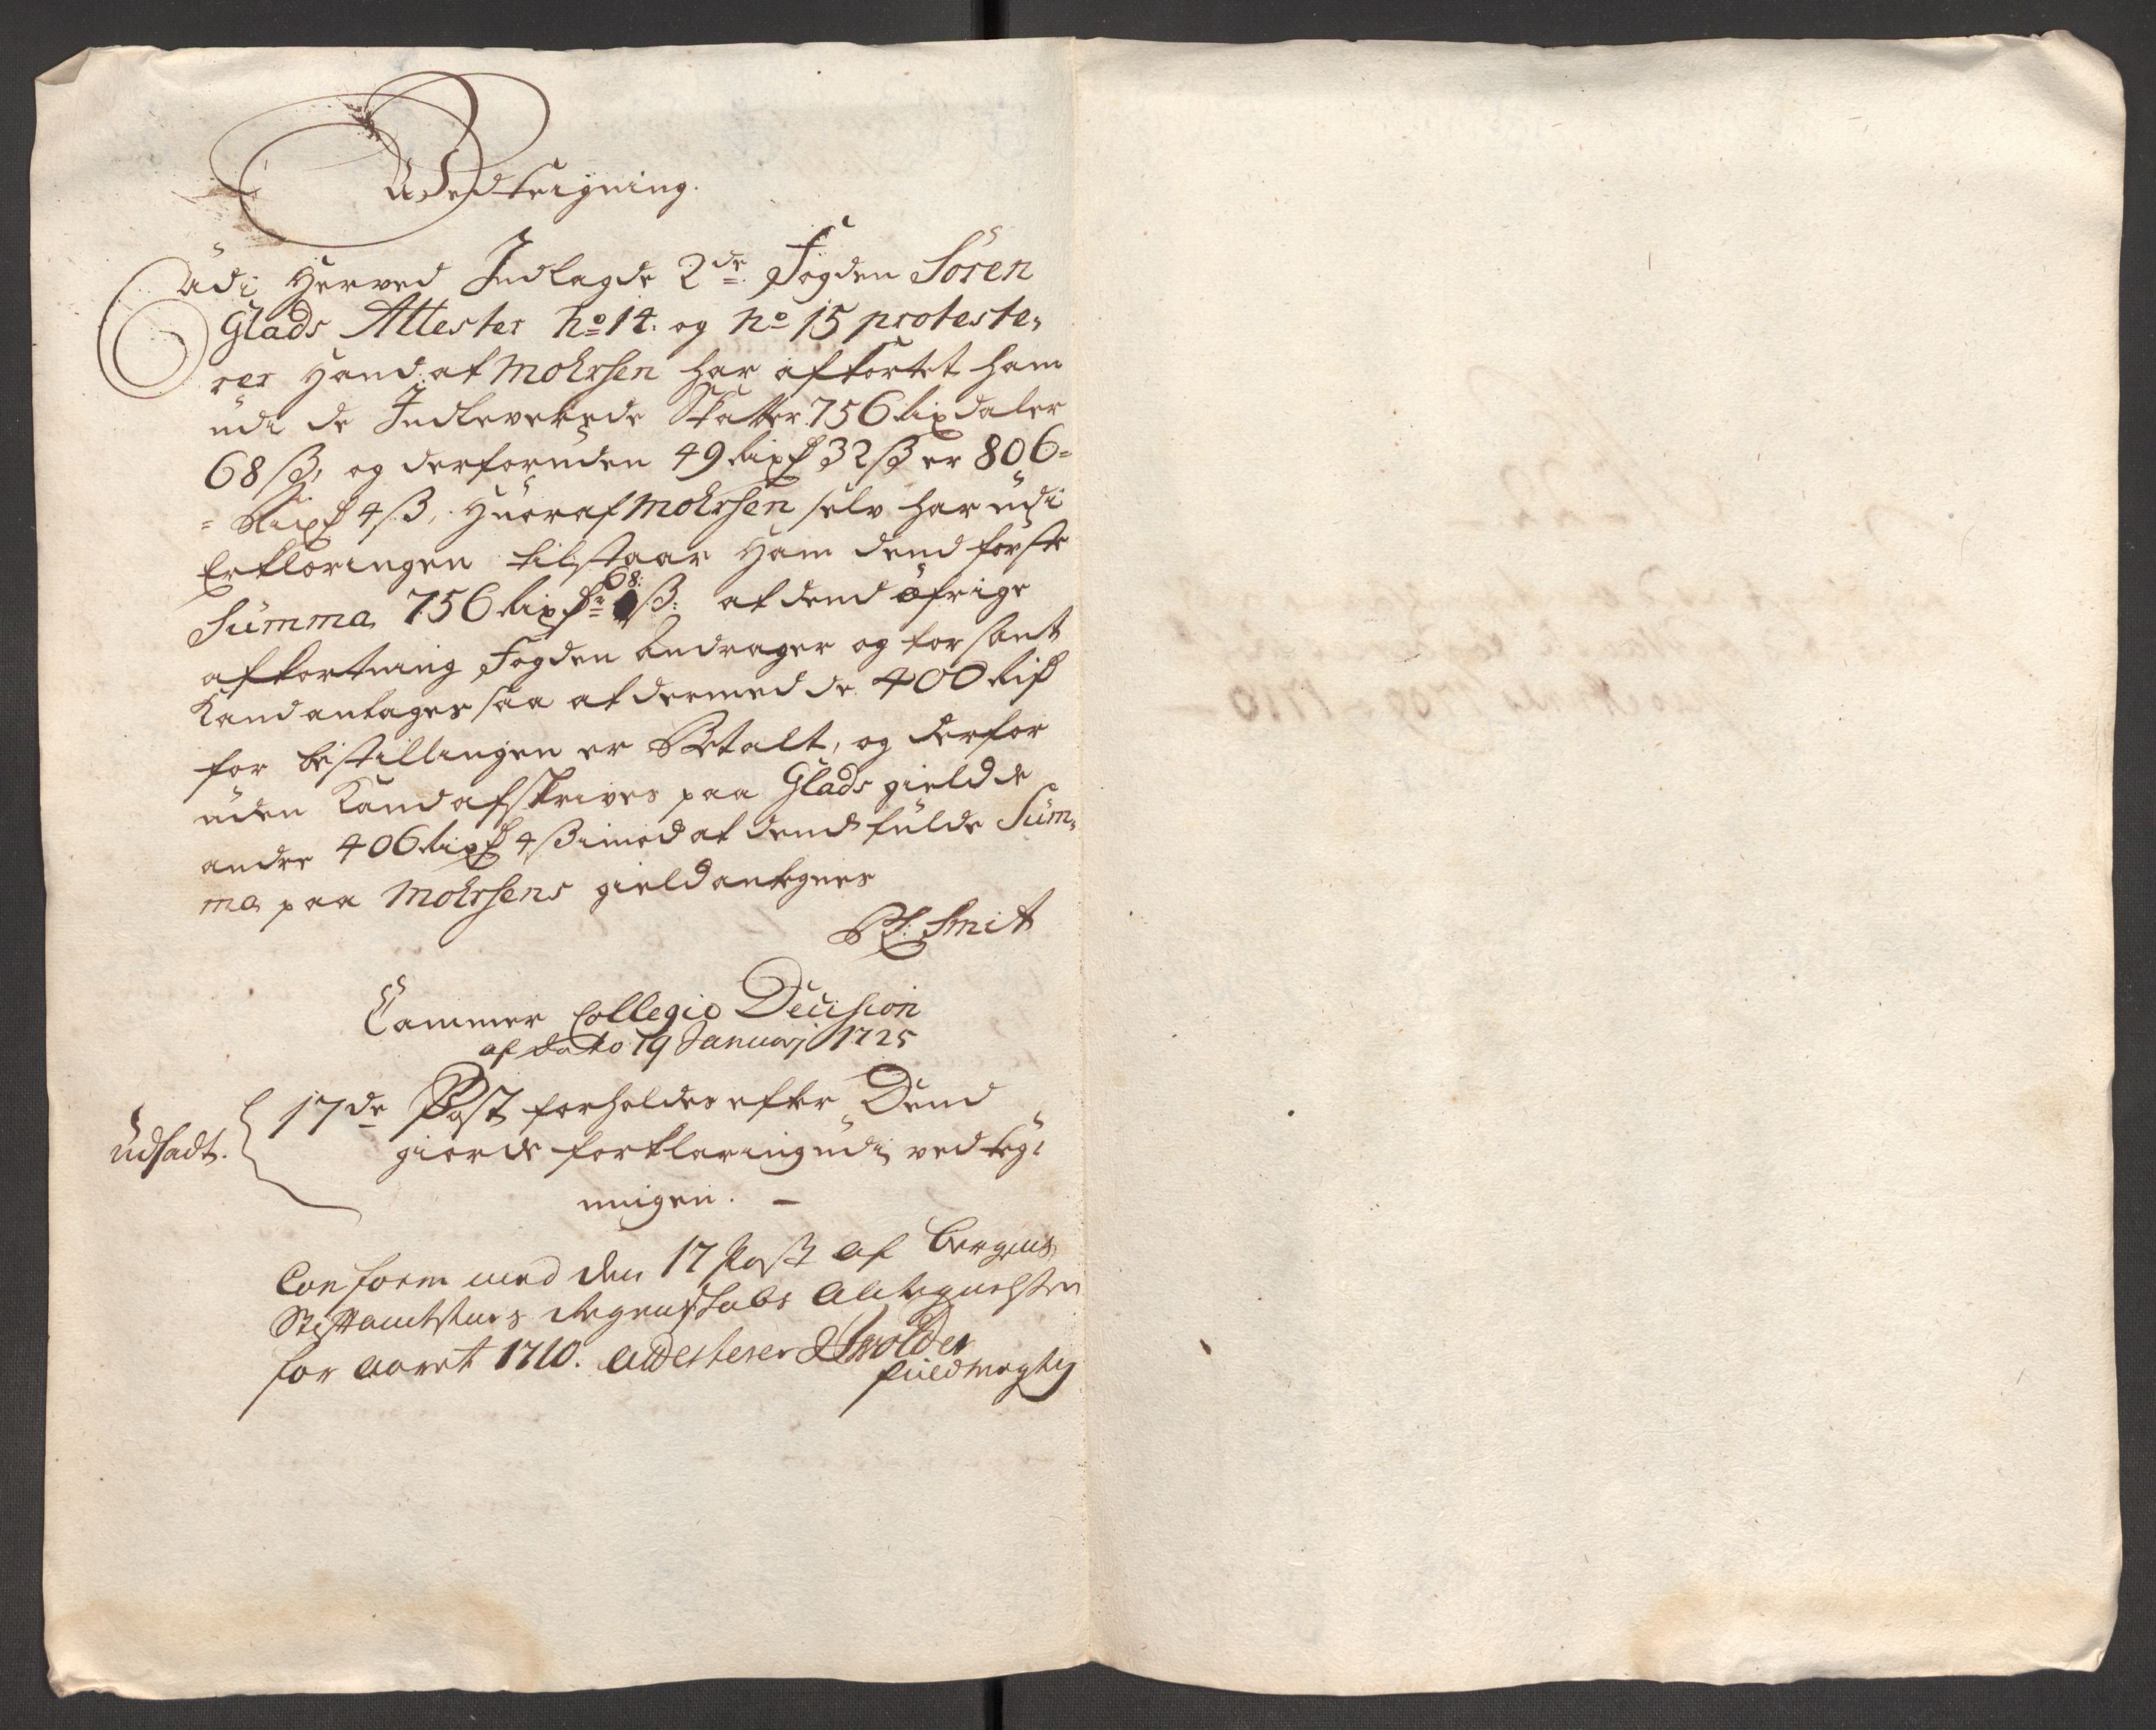 Udi Herved Indlagde 2de Fogden Sören
Glads Attester No 14. og No 15 proteste„
rer Hand at Mohrsen har afkortet ham
udi de Indleverede Skatter 756 Rixdaler
68 ß, og derforuden 49 Rixd 32 ß er 806=
= Rixd 4 ß, Huoraf Mohrsen selv har udi
Erklæringen tilstaar Ham dend förste
Summa 756 Rixdr 68 ß: at dend öfrige
afkortning Fogden Andrager og for sant
Kand antages saa at dermed de 400 Rixd
for bestillingen er Betalt, og derfor
uden Kand afskrives paa Glads gield de
andre 406 Rixd 4 ß imod at dend fulde Sum„
ma paa Mohrsens gield antegnes
Smit
Cammer Collegio Decision
af dato 19 Januarj 1725
17de Post forholdes efter Dend
udsadt.
giorde forklaring udi ved teg„
ningen. –
Conform med den 17 Post af Bergens
Stiftamtstues Regenskabs Antegnelser
for Aaret 1710. Attesterer
fuldmegtig